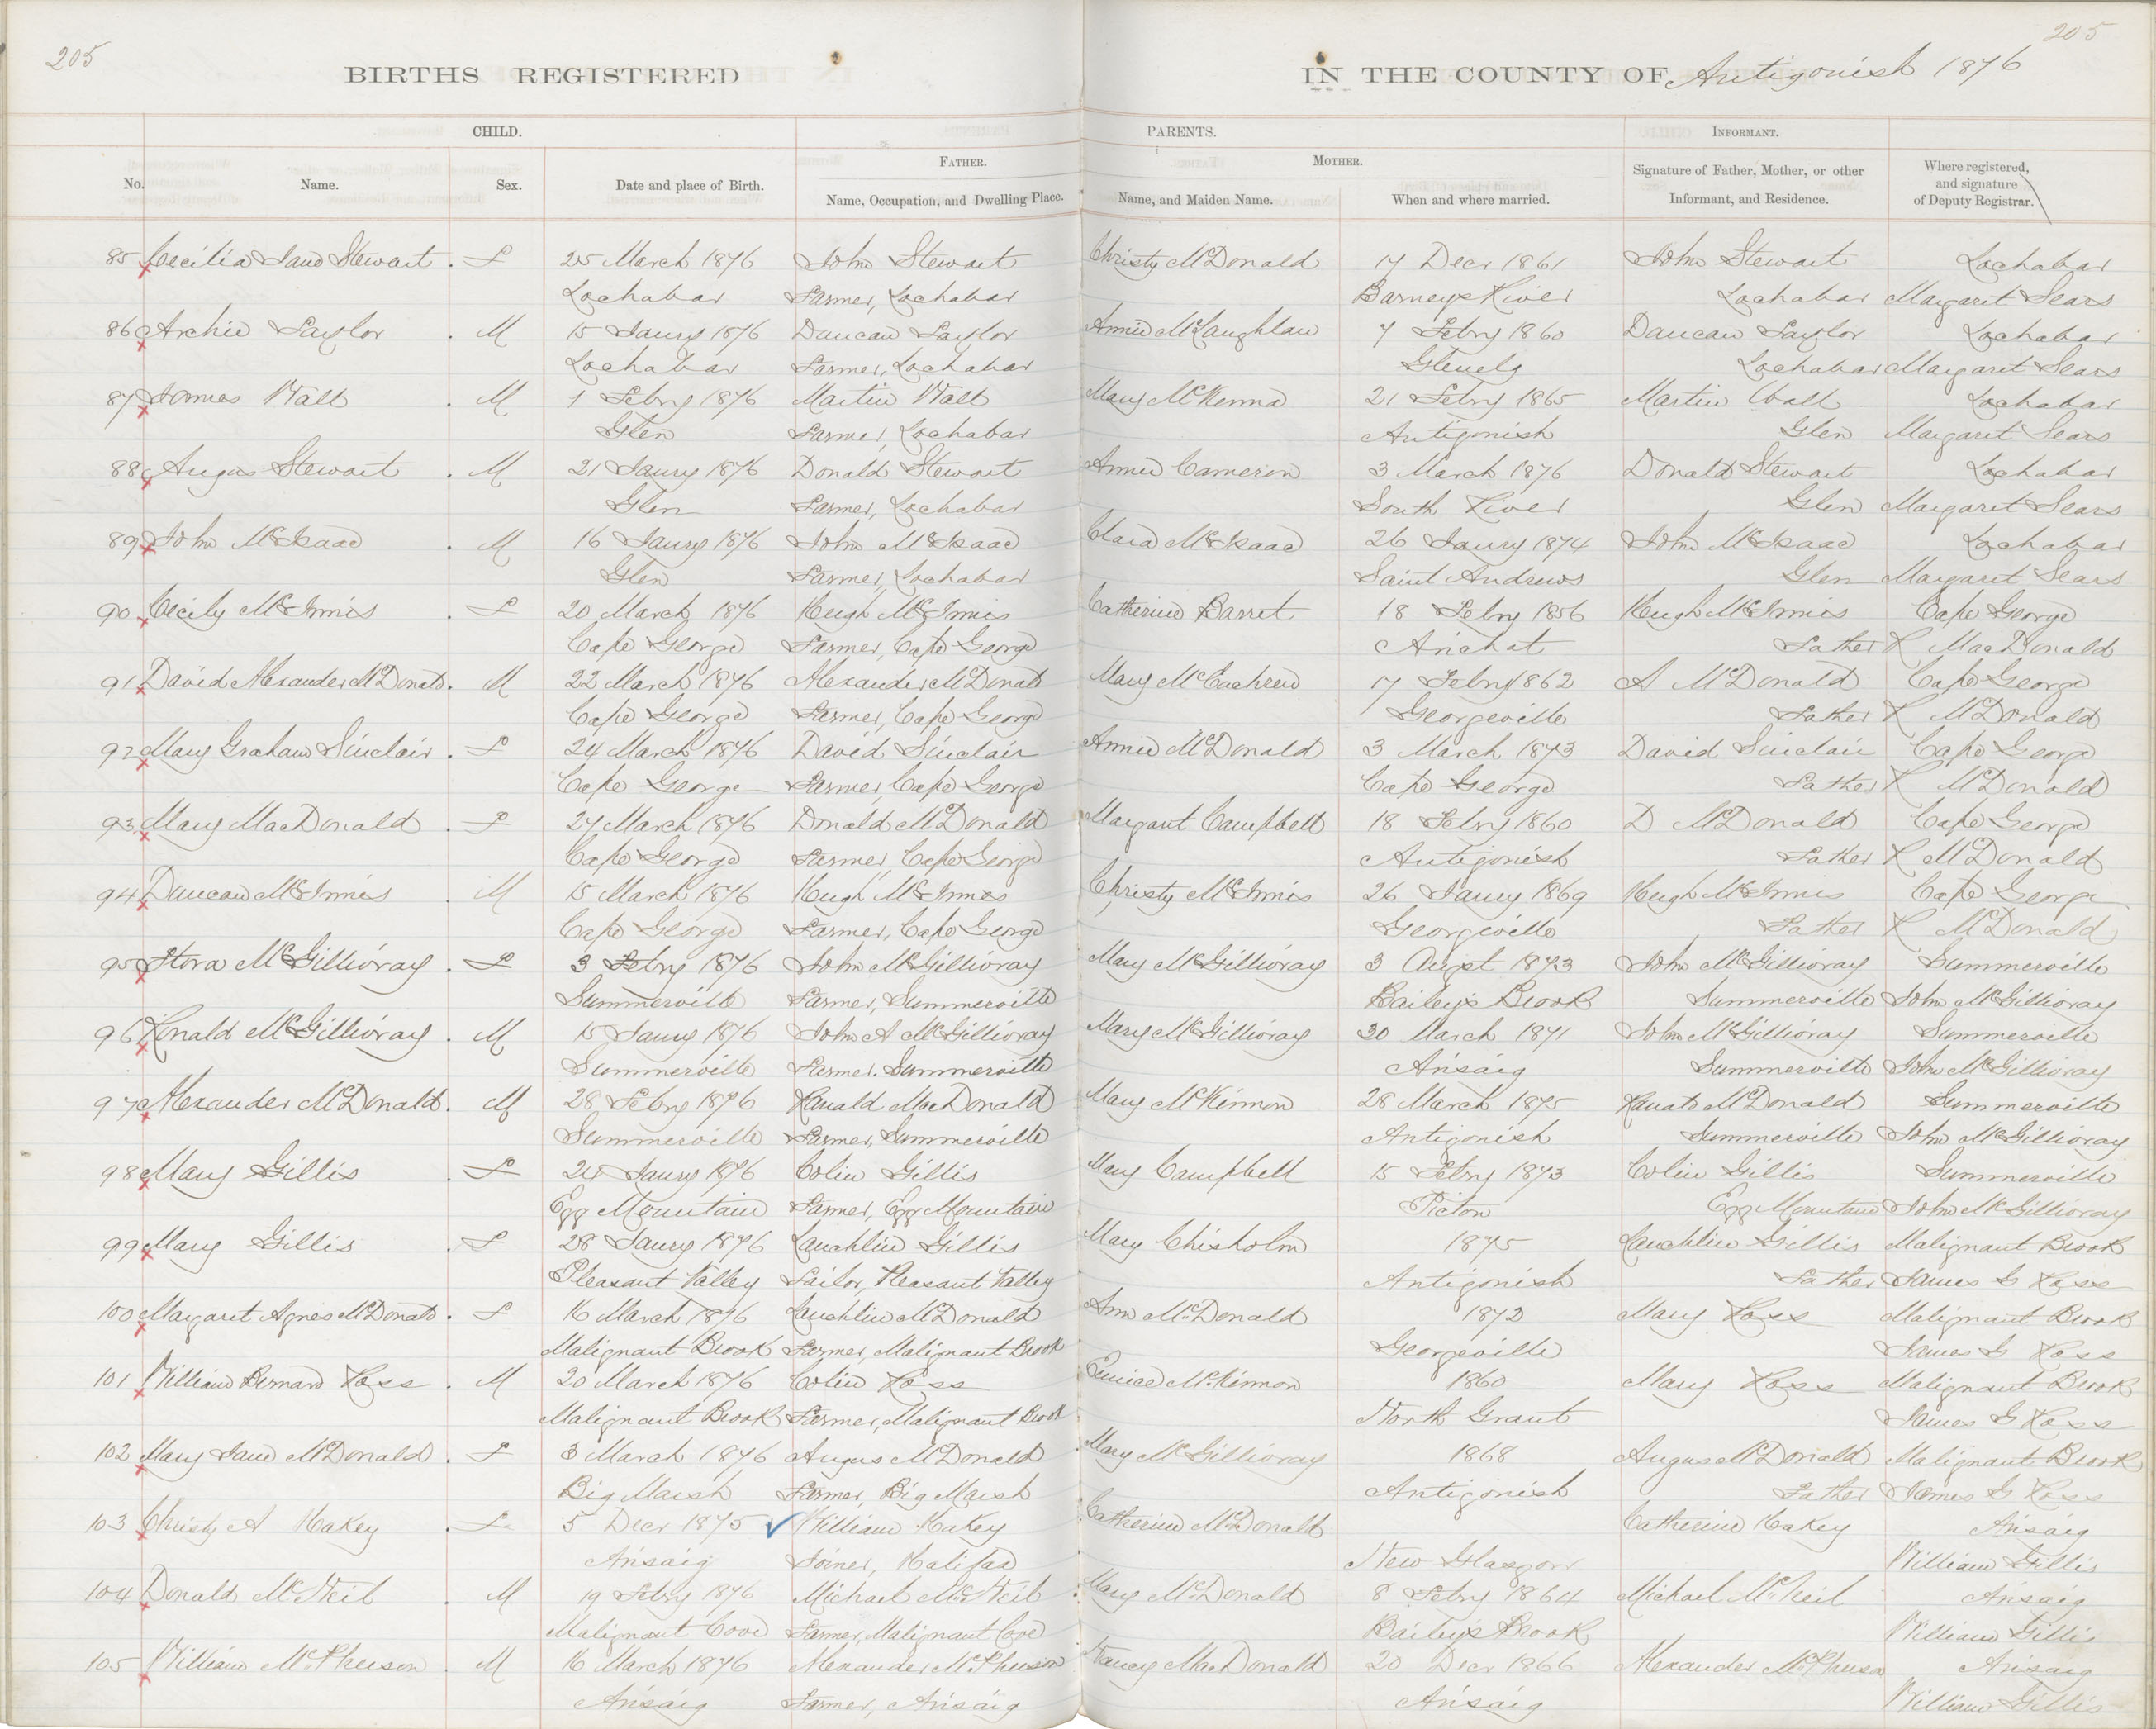 205
205
BIRTHS REGISTERED IN THE COUNTY OF Antigonish 1876
CHILD. PARENTS. INFORMANT.
FATHER. MOTHER.
No. Name. Sex. Date and place of Birth. Name, Occupation, and Dwelling Place. Name, and Maiden Name. When and where married. Signature of Father, Mother, or other Informant, and Residence. Where registered, and signature of Deputy Registrar.
85 Cecilia Jane Stewart . F 25 March 1876 John Stewart Christy McDonald 17 Decr 1861 John Stewart Lochabar
Lochabar Farmer, Lochabar Barneys River Lochabar Margaret Sears
86 Archie Taylor . M 15 Jaury 1876 Duncan Taylor Annie McLaughlan 7 Febry 1860 Duncan Taylor Lochabar
Lochabar Farmer, Lochabar Glenelg Lochabar Margaret Sears
87 James Wall . M 1 Febry 1876 Martin Wall Mary McKenna 21 Febry 1865 Martin Wall Lochabar
Glen Farmer, Lochabar Antigonish Glen Margaret Sears
88 Angus Stewart . M 21 Jaury 1876 Donald Stewart Annie Cameron 3 March 1876 Donald Stewart Lochabar
Glen Farmer, Lochabar South River Glen Margaret Sears
89 John McIsaac . M 16 Jaury 1876 John McIsaac Clara McIsaac 26 Jaury 1874 John McIsaac Lochabar
Glen Farmer, Lochabar Saint Andrews Glen Margaret Sears
90 Cecily McInnis . F 20 March 1876 Hugh McInnis Catherine Barret 18 Febry 1856 Hugh McInnis Cape George
Cape George Farmer, Cape George Arichat Father R MacDonald
91 David Alexander McDonald . M 22 March 1876 Alexander McDonald Mary McEachren 17 Febry 1862 A McDonald Cape George
Cape George Farmer, Cape George Georgeville Father R McDonald
92 Mary Graham Sinclair . F 24 March 1876 David Sinclair Annie McDonald 3 March 1873 David Sinclair Cape George
Cape George Farmer, Cape George Cape George Father R McDonald
93 Mary MacDonald . F 27 March 1876 Donald McDonald Margaret Campbell 18 Febry 1860 D McDonald Cape George
Cape George Farmer, Cape George Antigonish Father R McDonald
94 Duncan McInnis . M 15 March 1876 Hugh McInnes Christy McInnis 26 Jaury 1869 Hugh McInnis Cape George
Cape George Farmer, Cape George Georgeville Father R McDonald
95 Flora McGillivray . F 3 Febry 1876 John McGillivray Mary McGillivray 3 Augst 1873 John McGillivray Summerville
Summerville Farmer, Summerville Bailey's Brook Summerville John McGillivray
96 Ronald McGillivray . M 15 Jaury 1876 John A McGillivray Mary McGillivray 30 March 1871 John McGillivray Summerville
Summerville Farmer. Summerville Arisaig Summerville John McGillivray
97 Alexander McDonald . M 28 Febry 1876 Ranald MacDonald Mary McKinnon 28 March 1875 Ranald McDonald Summerville
Summerville Farmer, Summerville Antigonish Summerville John McGillivray
98 Mary Gillis . F 24 Jaury 1876 Colin Gillis Mary Campbell 15 Febry 1873 Colin Gillis Summerville
Egg Mountain Farmer, Egg Mountain Picton Egg Mountain John McGillivray
99 Mary Gillis . F 28 Jaury 1876 Lauchlin Gillis Mary Chisholm 1875 Lauchlin Gillis Malignant Brook
Pleasant Valley Tailor, Pleasant Valley Antigonish Father James G Ross
100 Margaret Agnes McDonald . F 16 March 1876 Lauchlin McDonald Ann McDonald 1872 Mary Ross Malignant Brook
Malignant Brook Farmer, Malignant Brook Georgeville James G Ross
101 William Bernard Ross . M 20 March 1876 Colin Ross Eunice McKinnon 1860 Mary Ross Malignant Brook
Malignant Brook Farmer, Malignant Brook North Grant James G Ross
102 Mary Jane McDonald . F 3 March 1876 Angus McDonald Mary McGillivray 1868 Angus McDonald Malignant Brook
Big Marsh Farmer, Big Marsh Antigonish Father James G Ross
103 Christy A Hakey . F 5 Decr 1875 ✓ William Hakey Catherine McDonald Catherine Hakey Arisaig
Arisaig Joiner, Halifax New Glasgow William Gillis
104 Donald McNeil . M 19 Febry 1876 Michael McNeil Mary McDonald 8 Febry 1864 Michael McNeil Arisaig
Malignant Cove Farmer, Malignant Cove Bailey's Brook William Gillis
105 William McPherson . M 16 March 1876 Alexander McPherson Nancy MacDonald 20 Decr 1866 Alexander McPherson Arisaig
Arisaig Farmer, Arisaig Arisaig William Gillis